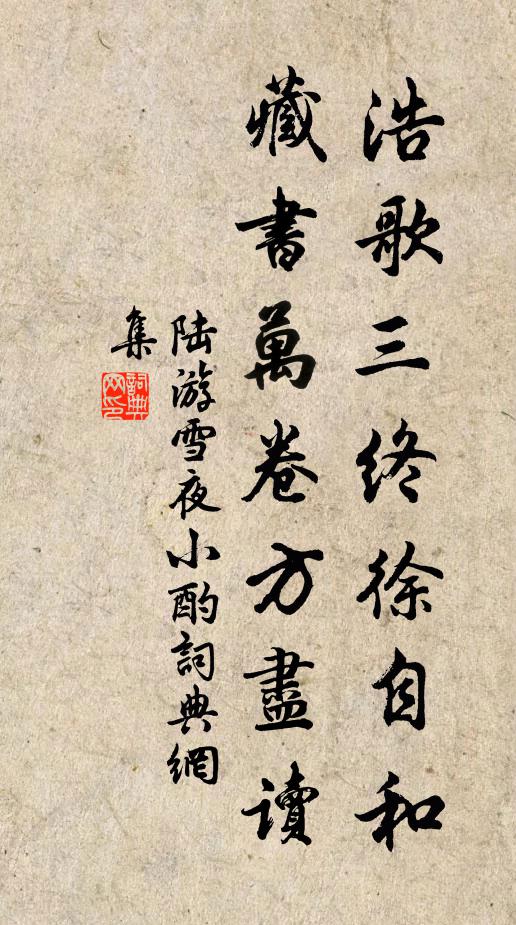 浩歌三終徐自和
藏書萬卷方盡讀
陆游雪夜小酌詞典網
集
詞典
网印